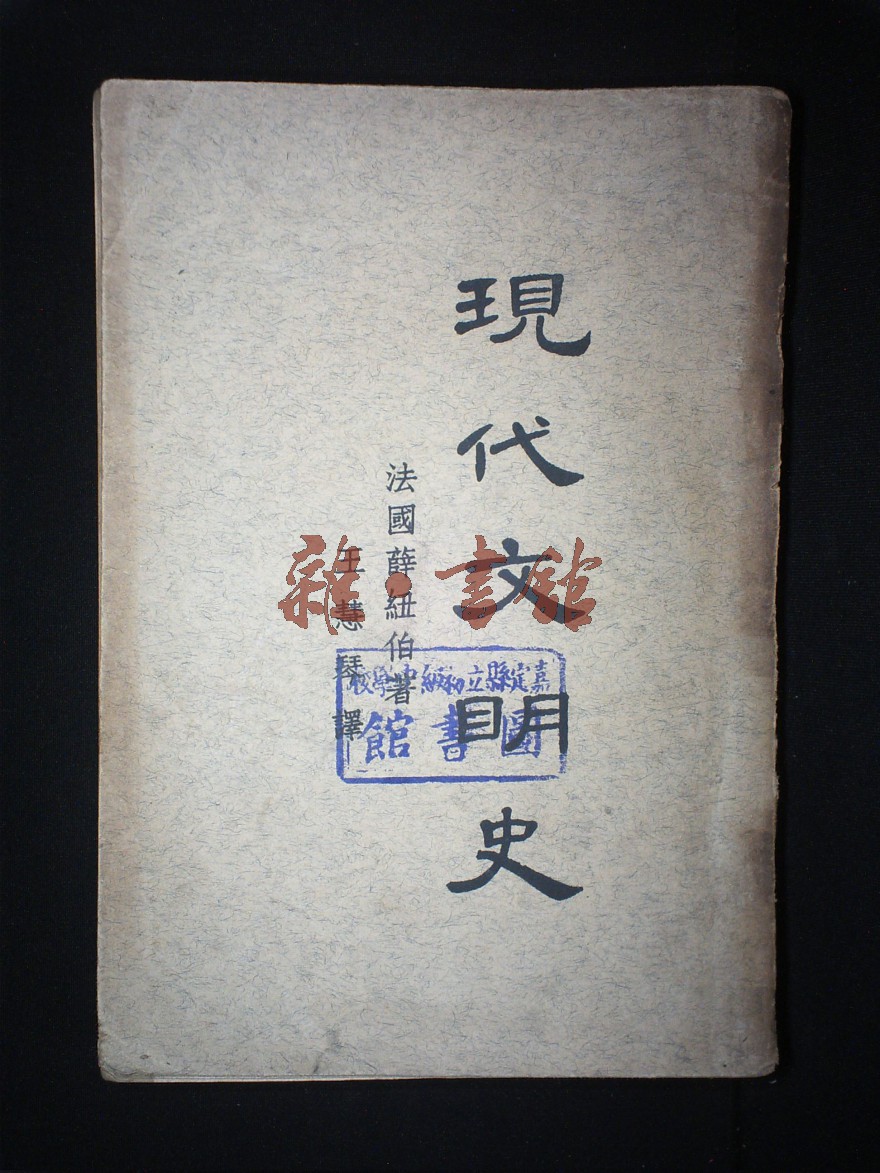 現代文明史
法國薛紐伯著
王慧琴譯
嘉定縣立初級中學校
圖書館
雜·書館